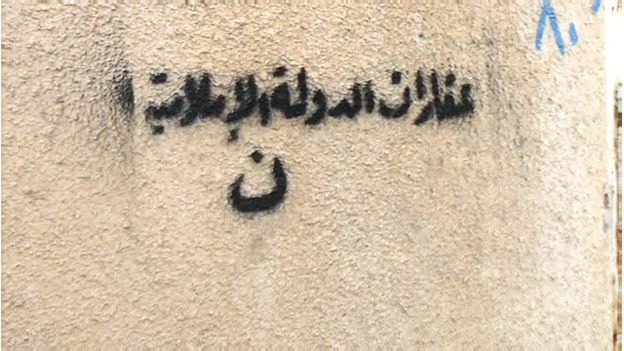 عقارات الدولة الإسلامية
ن